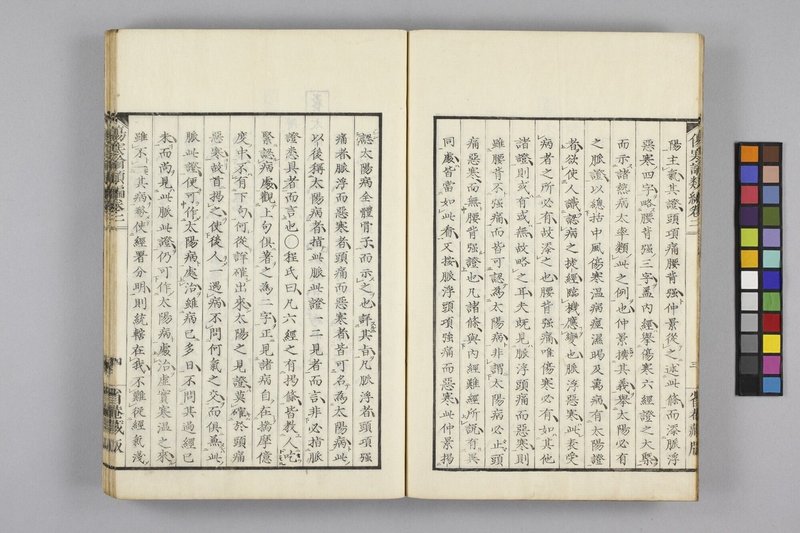 陽主氣其證頭項痛腰背强仲景從之述此條而添脈浮
惡寒四字略腰背强三字蓋內經擧傷寒六經證之大槩
而示諸熱病大率類此之例也仲景擴其義擧太陽必有
之脈證以總括中風傷寒溫病痙濕暍及萬病有太陽證
者欲使人識認病之捷經臨機應變也脈浮惡寒此表受
病者之所必有故添之也腰背强痛唯傷寒必有如其他
諸證則或有或無故略之耳夫既見脈浮頭痛而惡寒則
雖腰背不强痛而皆可認為太陽病非謂太陽病必止頭
痛惡寒而無腰背强證也凡諸條與內經難經所說有異
同處皆當如此看又按脈浮頭項强痛而惡寒此仲景揭
傷寒論類編卷二
三
省菴藏版
認太陽病全體骨子而示之也詳其旨凡脈浮者頭項强
痛者脈浮而惡寒者頭痛而惡寒者皆可名為太陽病此
以後稱太陽病者措此脈此證一二見者而言非必措脈
證悉具者而言也〇程氏曰凡六經之有揭條皆教人吃
緊認病處觀上句俱著之為二字正見諸病自在揣摩億
度中不有下句何從詳確出來太陽之見證莫確於頭痛
惡寒故首揚之使後人一遇病不問何氣之交而俱無此
脈此證便可作太陽病處治雖病已多日不問其過經已
未而尚見此脈此證仍可作太陽病處治虛實寒溫之來
雖不一其病務使經署分明則統轄在我不難從經氣淺
傷寒論類編卷二
四
省菴藏版